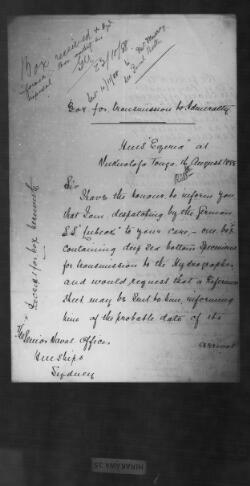 Box received &
forward
23/10/88
Box for transmission to Admiralty
HMS "Egeria" at
Nukualofa Tonga 16 August 1888
Sir
I have the honour to inform you
that I am despatching by the German
S.S. "Lubeck" to your care, one box
containing deep sea bottom specimens
for transmission to the Hydrographer
and would request that a Reference
Sheet may be sent to him, informing
him of the probable date of its
arrival
The Senior Naval Officer
HM Ships
Sydney
Receipt for box herewith
HIRAKAWA 35